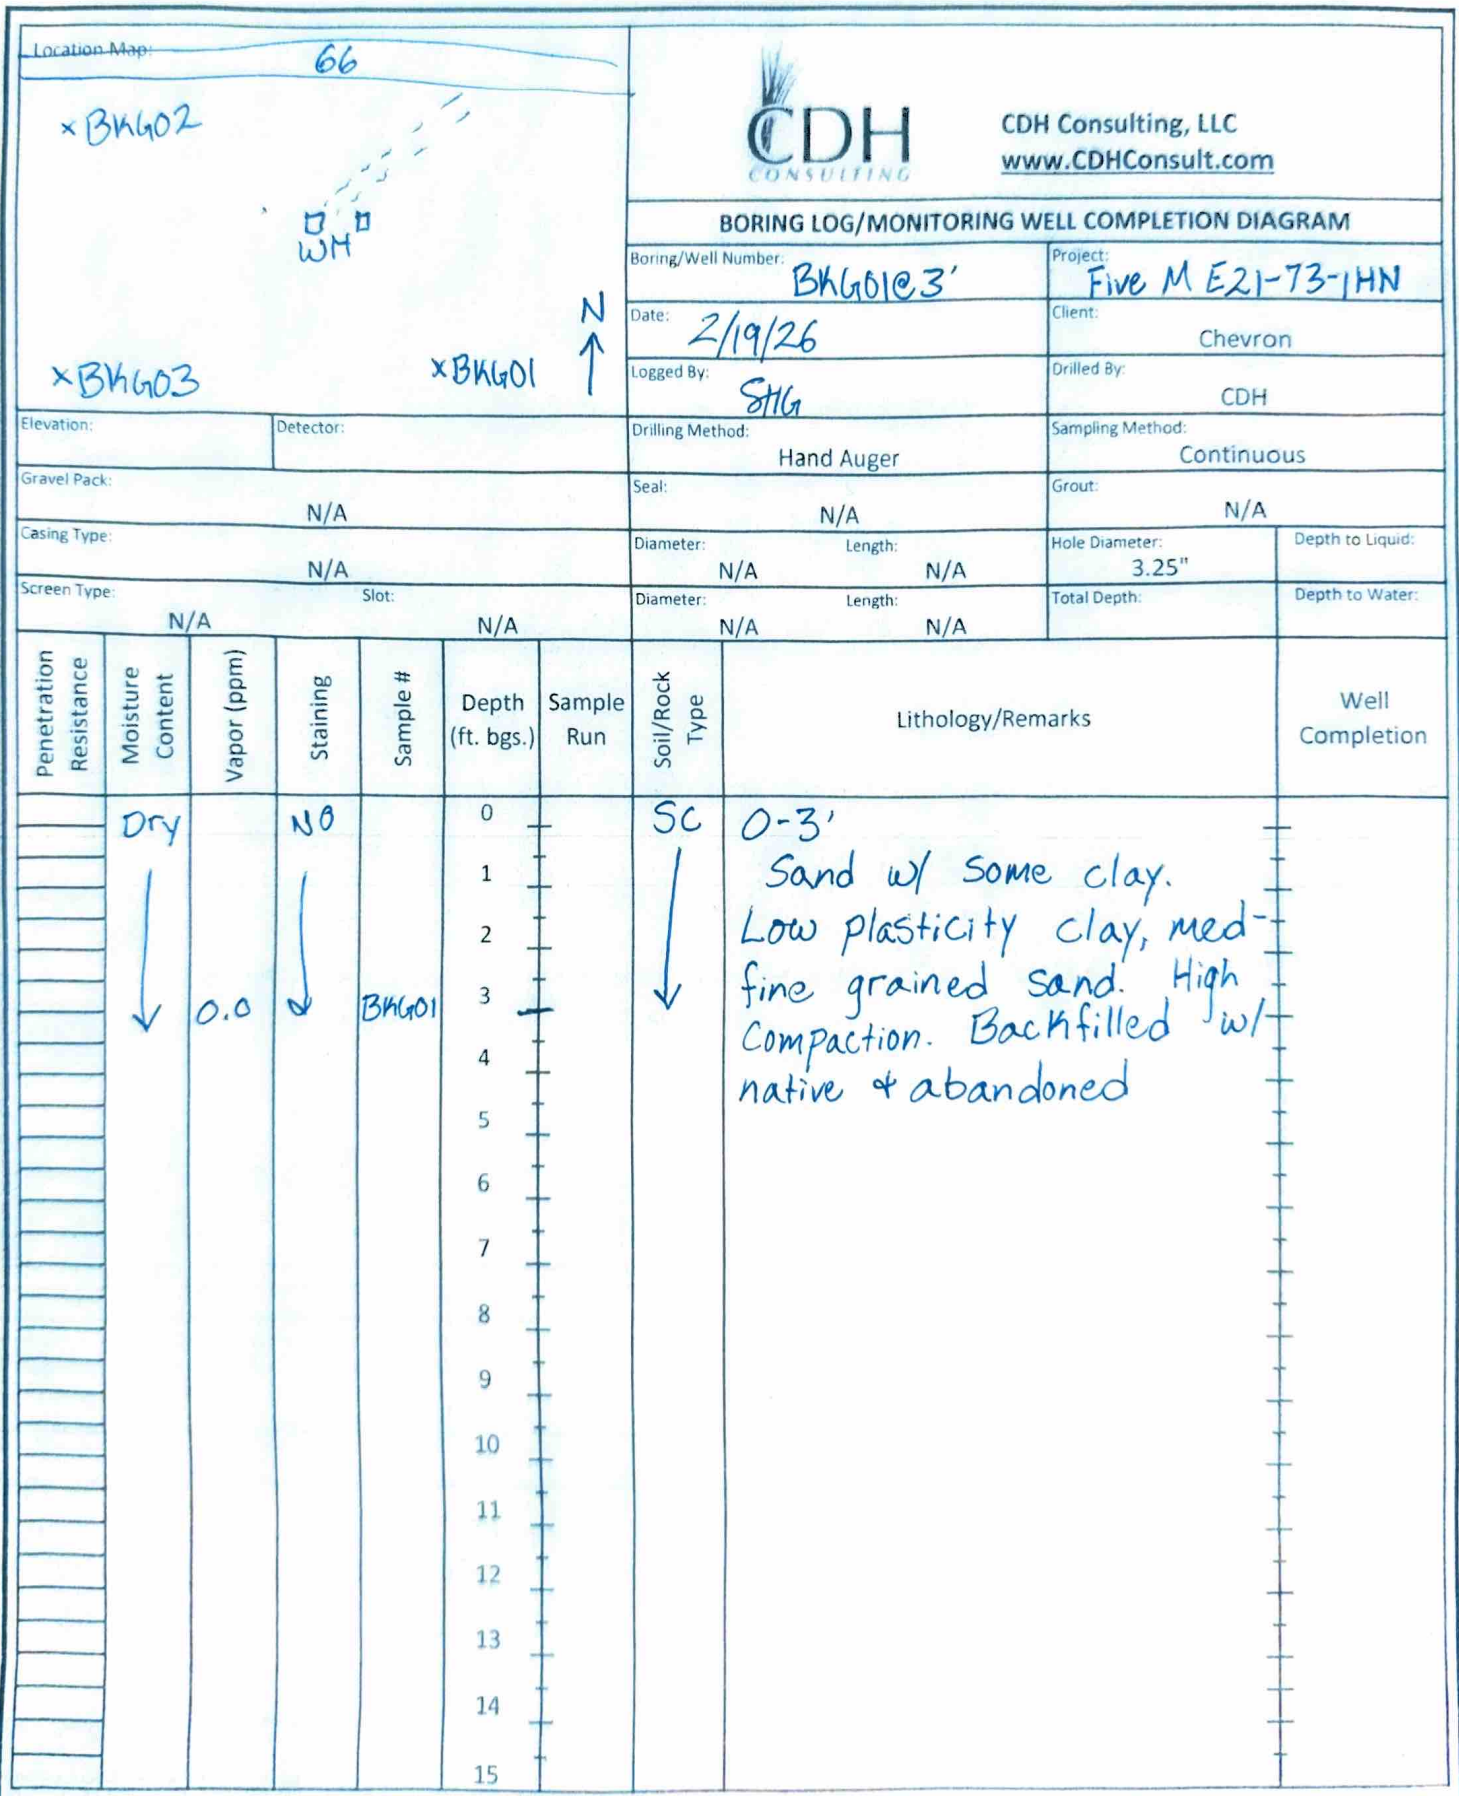 Location Map:
66
× BKG02
WH
N
× BKG03
× BKG01
CDH
CONSULTING
CDH Consulting, LLC
www.CDHConsult.com
BORING LOG/MONITORING WELL COMPLETION DIAGRAM
Boring/Well Number: BKG01@3'
Project: Five M E21-73-1HN
Date: 2/19/26
Client: Chevron
Logged By: SHG
Drilled By: CDH
Elevation:
Detector:
Drilling Method: Hand Auger
Sampling Method: Continuous
Gravel Pack: N/A
Seal: N/A
Grout: N/A
Casing Type: N/A
Diameter: N/A
Length: N/A
Hole Diameter: 3.25"
Depth to Liquid:
Screen Type: N/A
Slot: N/A
Diameter: N/A
Length: N/A
Total Depth:
Depth to Water:
Penetration Resistance
Moisture Content
Vapor (ppm)
Staining
Sample #
Depth (ft. bgs.)
Sample Run
Soil/Rock Type
Lithology/Remarks
Well Completion
Dry
NO
0
SC
0-3'
1
Sand w/ some clay.
2
Low plasticity clay, med-
0.0
BKG01
3
fine grained sand. High
4
Compaction. Backfilled w/
native & abandoned
5
6
7
8
9
10
11
12
13
14
15